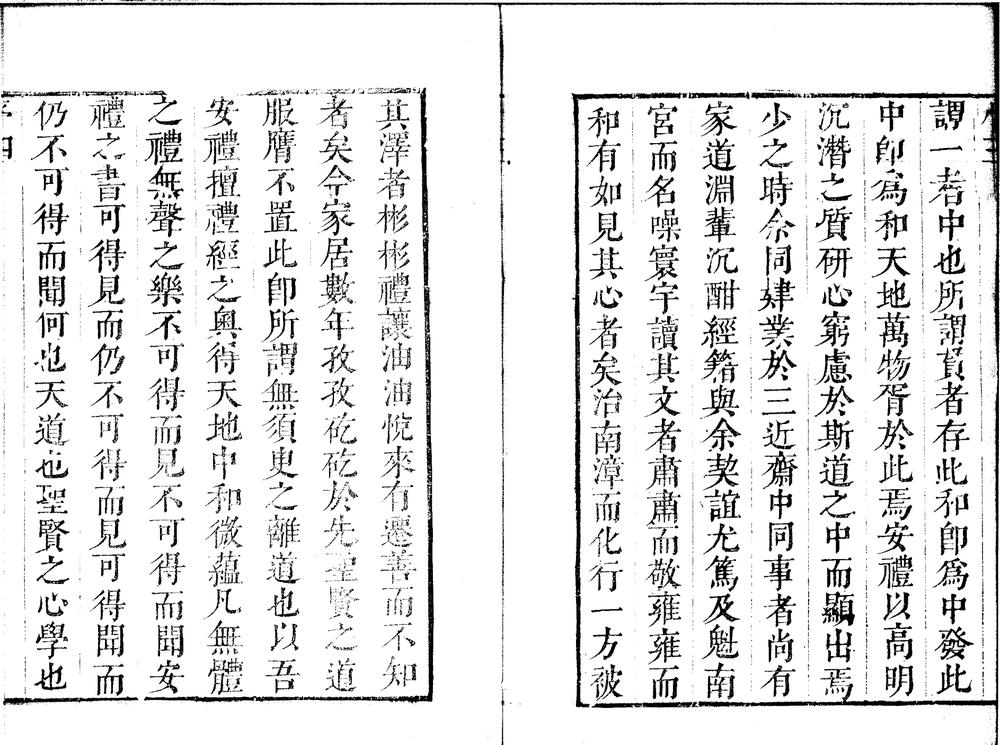 謂一者中也所謂賢者存此和即爲中發此
中即爲和天地萬物胥於此焉安禮以高明
沉潛之質研心窮慮於斯道之中而顯出焉
少之時余同肄業於三近齋中同事者尚有
家道淵輩沉酣經籍與余契誼尤篤及魁南
宮而名噪寰宇讀其文者肅肅而敬雍雍而
和有如見其心者矣治南漳而化行一方被
其澤者彬彬禮讓油油悅來有遷善而不知
者矣今家居數年孜孜矻矻於先聖賢之道
服膺不置此即所謂無須臾之離道也以吾
安禮擅禮經之奧得天地中和微蘊凡無體
之禮無聲之樂不可得而見不可得而聞安
禮之書可得見而仍不可得而見可得聞而
仍不可得而聞何也天道也聖賢之心學也
序四